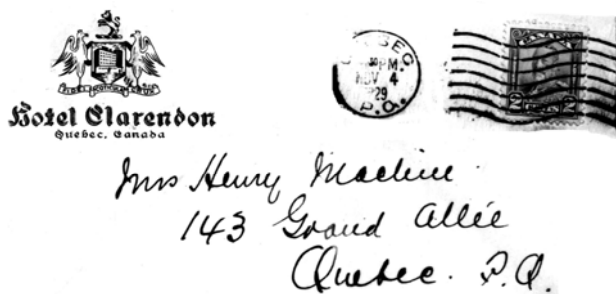 Hotel Clarendon
Quebec, Canada
QUEBEC
PM
NOV 4
29
P.Q.
Mrs Henry Machin
143 Grand Allée
Quebec. P.Q.